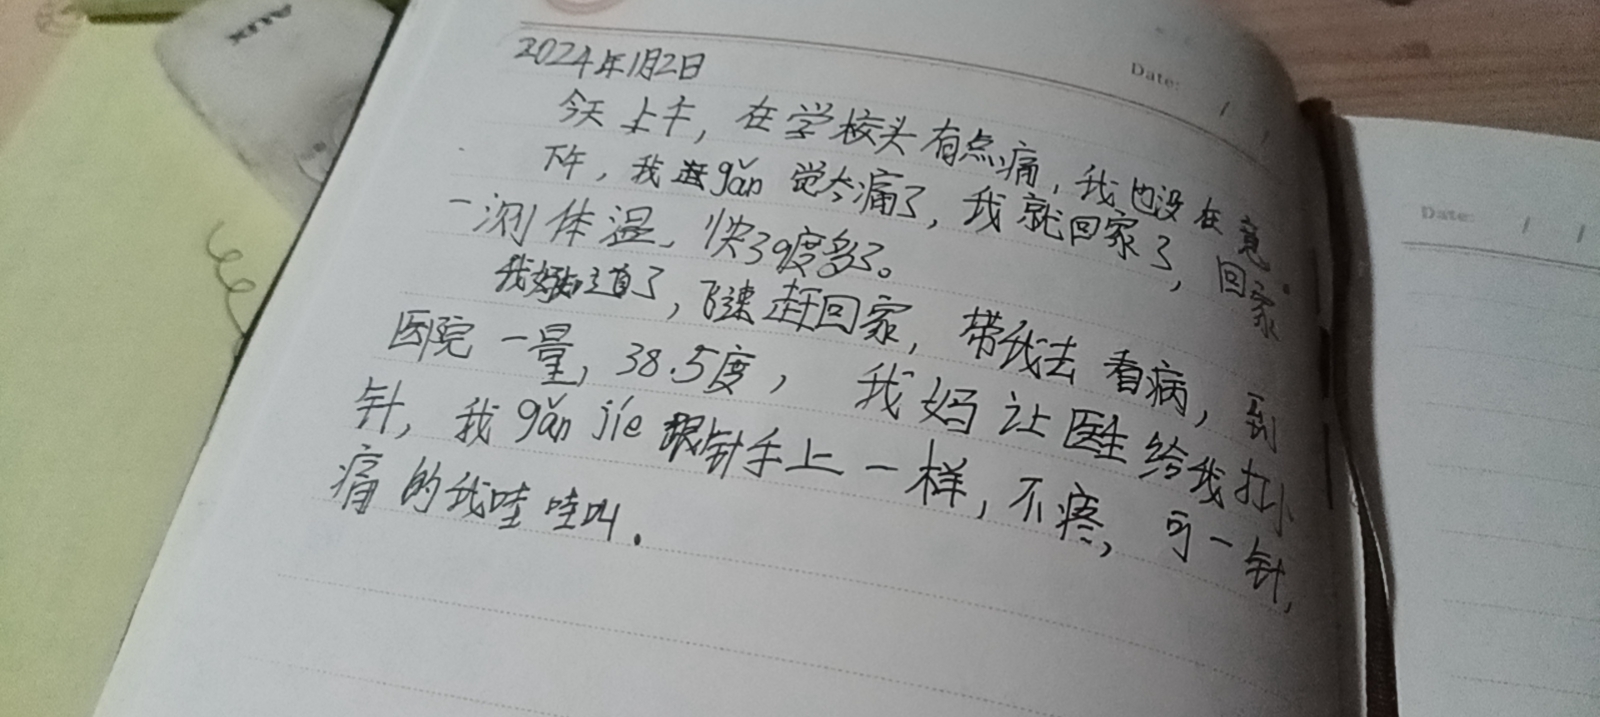 XUA
Date: / /
2024年1月2日
今天上午，在学校头有点痛，我也没在意。
下午，我gǎn觉太痛了，我就回家了，回家
一测体温，快39度多了。
我妈知道了，飞速赶回家，带我去看病，到
医院一量，38.5度，我妈让医生给我打小
针，我gǎn jíe跟针手上一样，不疼，可一针，
痛的我哇哇叫.
Date: / /